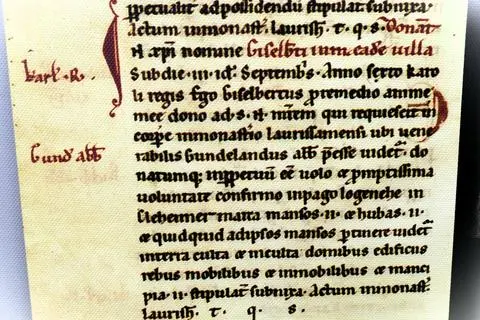 ꝑpetualit̄ ad possidendū stipulat̄ subnixa.
Actum in monast̄. laurish̄. t. q. s. Donat̄
xp̄i nomine Giselb̄ti in eadē uilla
karl. R.
Subdie .iii. id̄. Septemb̄s. Anno sexto karo
li regis Ego Giselbertus p remedio anime
mee dono ad .s. N. mr̄em qui requiescit in
corpe in monast̄io laurissamensi ubi uene
Gund abb̄
rabilis Gundelandus abb̄ p̄esse uidet̄. do
natumq; inppetuū eē uolo & pmptissima
uoluntate confirmo inpago logenehe in
marca mansos .ii. & hubas .ii.
& quidquid adipsos mansos ptinere uidet̄
interra culta & inculta domibus edificiis
rebus mobilibus & inmobilibus & manci
pia .ii. stipulat̄ subnixa. Actum inmonast̄.
laurish̄. t. q. s.